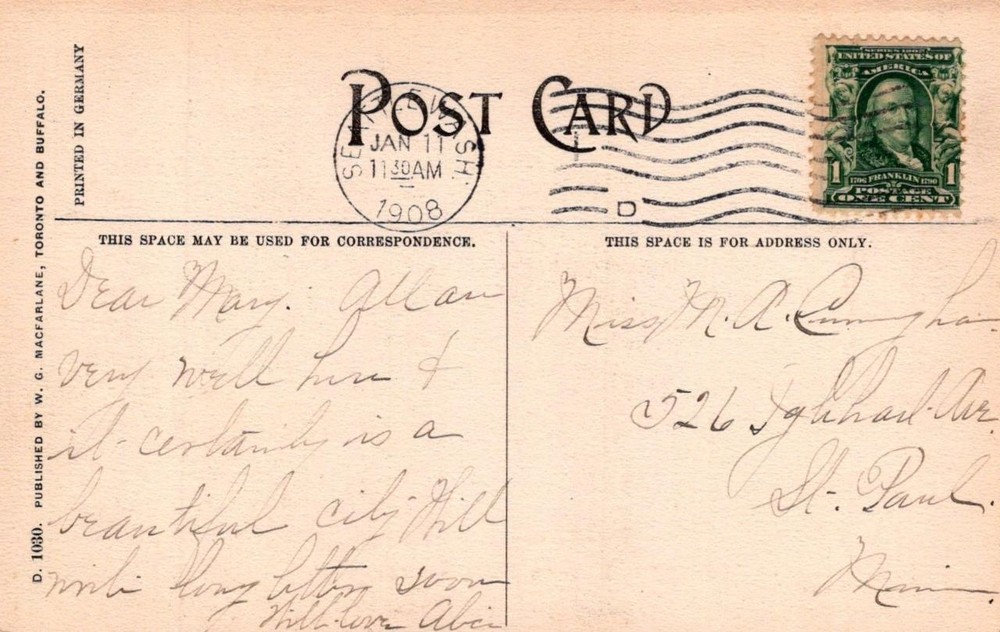 PRINTED IN GERMANY
D. 1030. PUBLISHED BY W. G. MACFARLANE, TORONTO AND BUFFALO.
POST CARD
SEATTLE WASH.
JAN 11
11 30 AM
1908
D
SERIES 1902
UNITED STATES OF
AMERICA
1 1
1706 FRANKLIN 1790
POSTAGE
ONE CENT
THIS SPACE MAY BE USED FOR CORRESPONDENCE.
Dear Mary: All are
very well here &
it certainly is a
beautiful city Will
write long letter soon
With love
THIS SPACE IS FOR ADDRESS ONLY.
Miss M. A. Cunningham
526 Iglehart Ave.
St. Paul.
Minn.